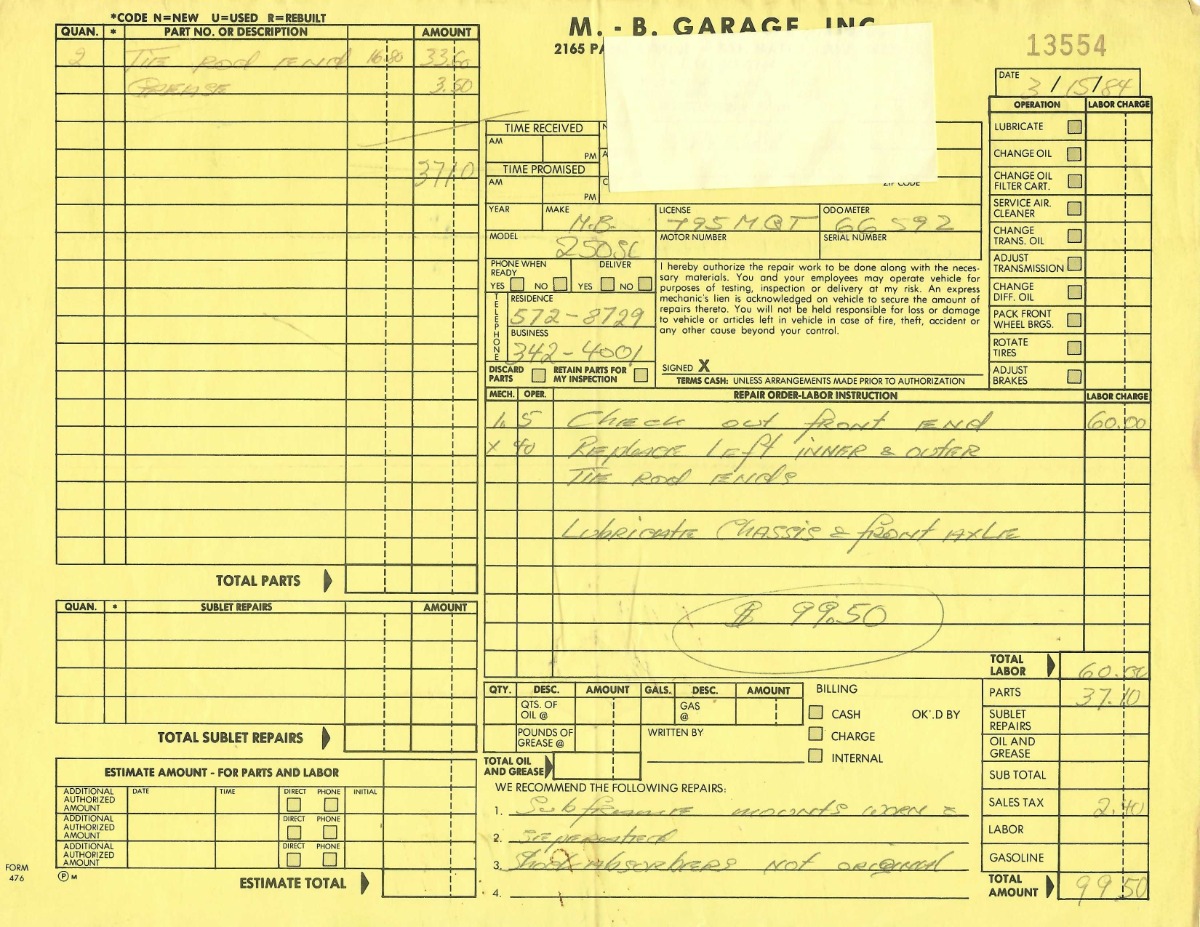 *CODE N=NEW U=USED R=REBUILT
QUAN. * PART NO. OR DESCRIPTION AMOUNT
2 TIE ROD END 16.80 33.60
GREASE 3.50
37.10
TOTAL PARTS
QUAN. * SUBLET REPAIRS AMOUNT
TOTAL SUBLET REPAIRS
ESTIMATE AMOUNT - FOR PARTS AND LABOR
ADDITIONAL AUTHORIZED AMOUNT DATE TIME DIRECT PHONE INITIAL
ADDITIONAL AUTHORIZED AMOUNT DIRECT PHONE
ADDITIONAL AUTHORIZED AMOUNT DIRECT PHONE
ESTIMATE TOTAL
FORM 476
P M
M. - B. GARAGE, INC
2165
13554
DATE 3/15/84
TIME RECEIVED
AM
PM
TIME PROMISED
AM
PM
ZIP CODE
YEAR MAKE M.B. LICENSE 795 MQT ODOMETER 66592
MODEL 250SL MOTOR NUMBER SERIAL NUMBER
PHONE WHEN READY YES NO DELIVER YES NO
TELEPHONE
RESIDENCE
572-8729
BUSINESS
342-4001
DISCARD PARTS RETAIN PARTS FOR MY INSPECTION
I hereby authorize the repair work to be done along with the neces-
sary materials. You and your employees may operate vehicle for
purposes of testing, inspection or delivery at my risk. An express
mechanic's lien is acknowledged on vehicle to secure the amount of
repairs thereto. You will not be held responsible for loss or damage
to vehicle or articles left in vehicle in case of fire, theft, accident or
any other cause beyond your control.
SIGNED X
TERMS CASH: UNLESS ARRANGEMENTS MADE PRIOR TO AUTHORIZATION
OPERATION LABOR CHARGE
LUBRICATE
CHANGE OIL
CHANGE OIL FILTER CART.
SERVICE AIR. CLEANER
CHANGE TRANS. OIL
ADJUST TRANSMISSION
CHANGE DIFF. OIL
PACK FRONT WHEEL BRGS.
ROTATE TIRES
ADJUST BRAKES
MECH. OPER. REPAIR ORDER-LABOR INSTRUCTION LABOR CHARGE
1. 5 Check out front END 60.00
X 40 Replace Left INNER & OUTER
TIE ROD ENDS
LUBRICATE CHASSIS & front AXLE
$ 99.50
TOTAL LABOR 60.00
QTY. DESC. AMOUNT GALS. DESC. AMOUNT
QTS. OF OIL @ GAS @
POUNDS OF GREASE @ WRITTEN BY
TOTAL OIL AND GREASE
BILLING
CASH OK'.D BY
CHARGE
INTERNAL
PARTS 37.10
SUBLET REPAIRS
OIL AND GREASE
SUB TOTAL
SALES TAX 2.40
LABOR
GASOLINE
TOTAL AMOUNT 99.50
WE RECOMMEND THE FOLLOWING REPAIRS:
1. Subframe mounts WORN &
2. Seperated
3. Shock ABSORBERS NOT ORIGINAL
4.